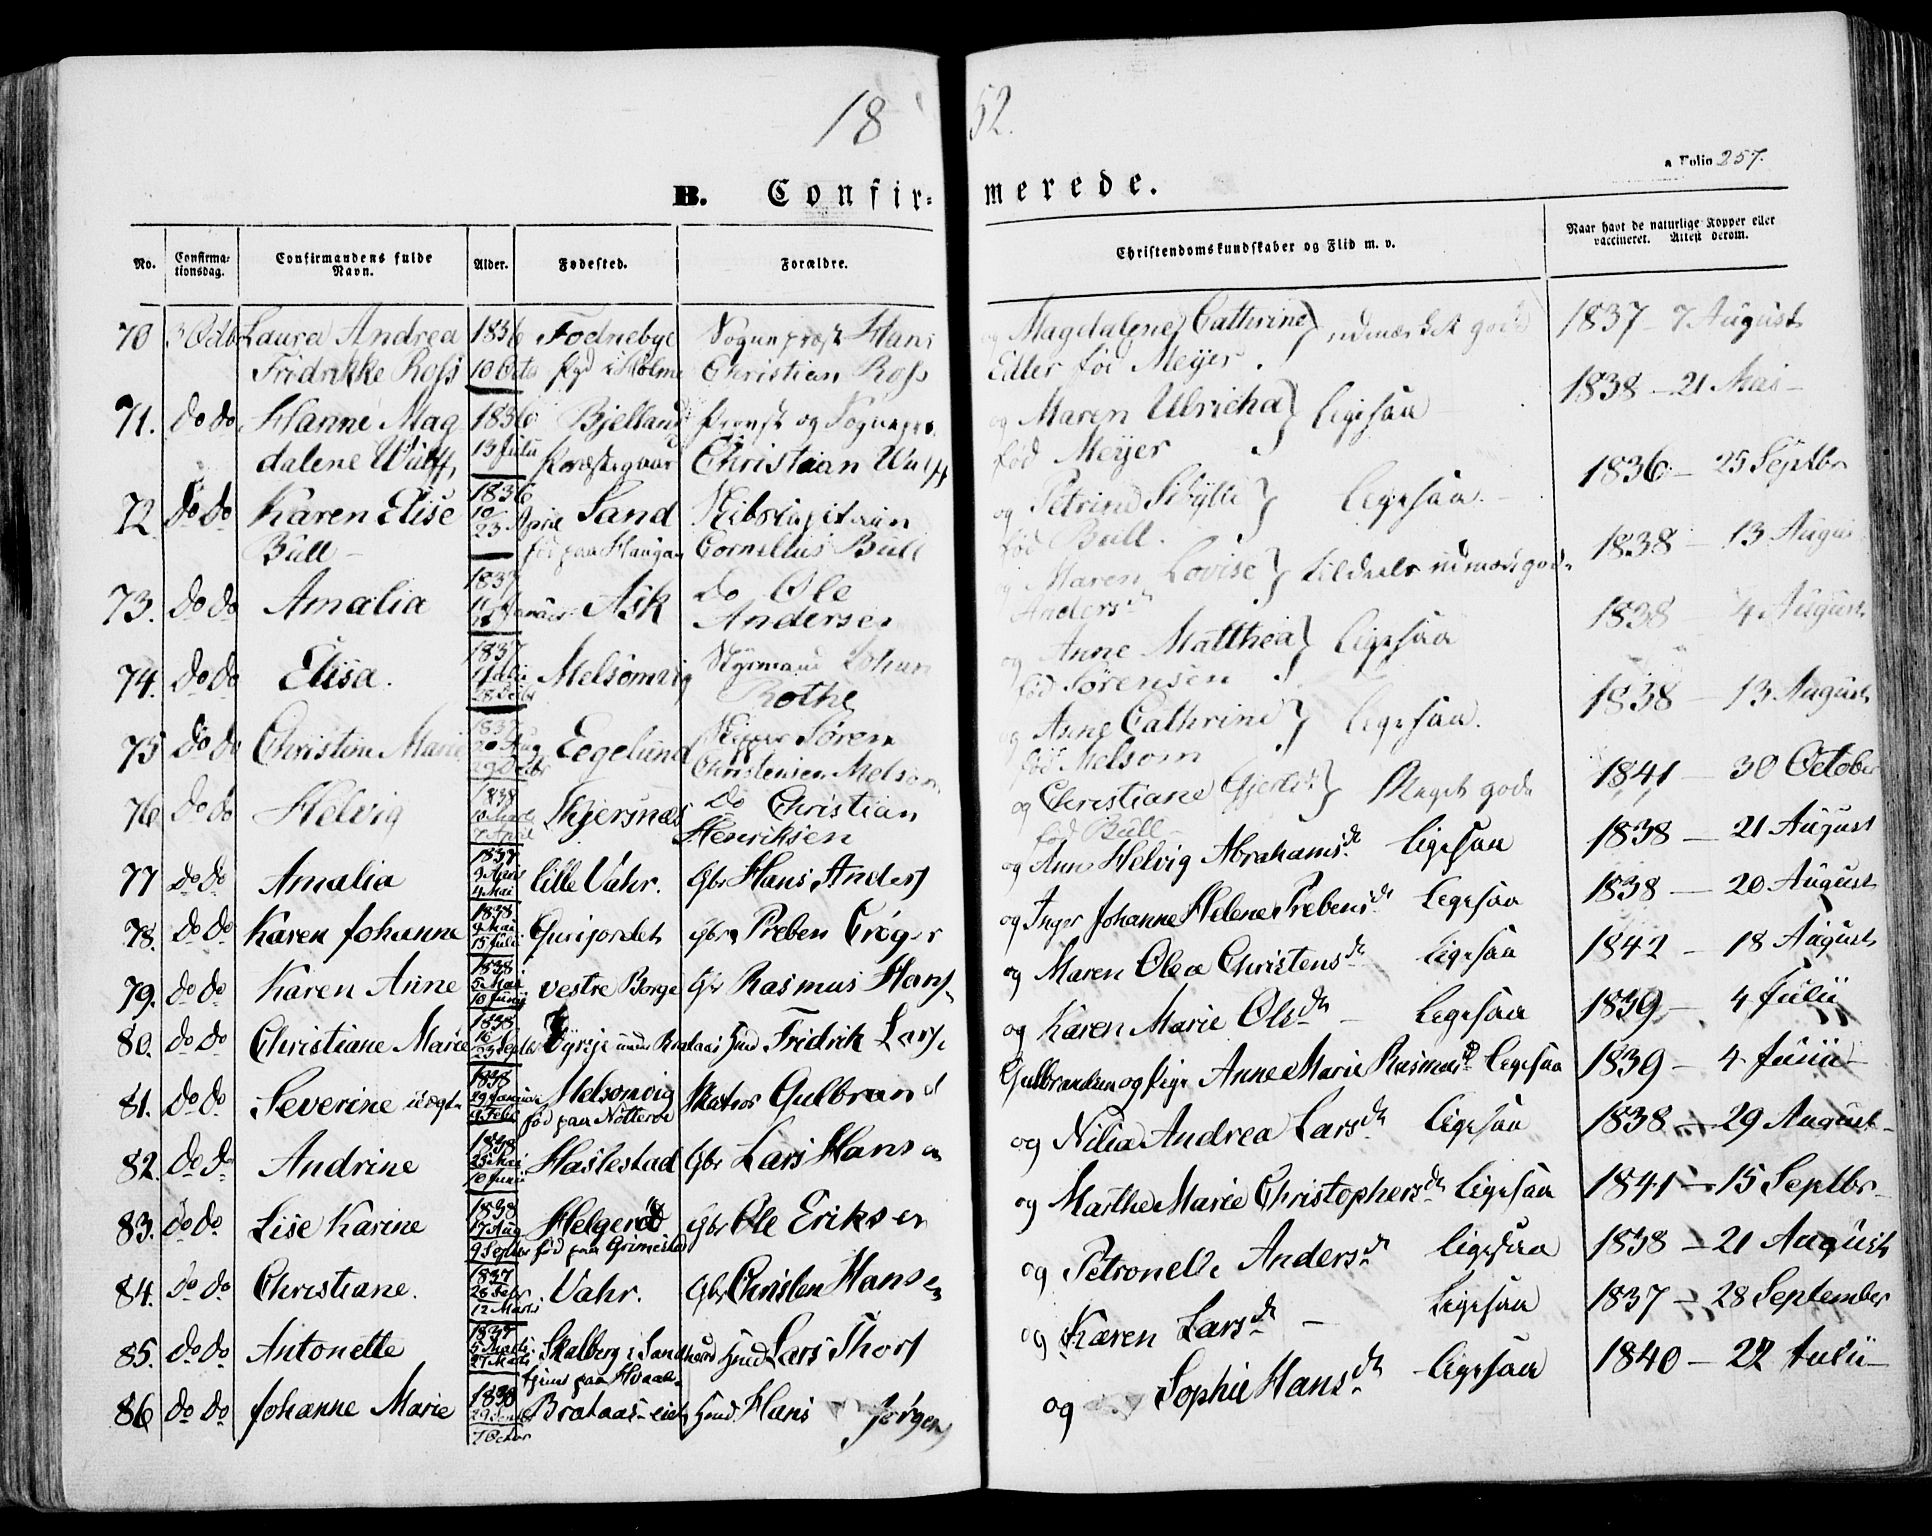 18 52.
a Folio 257.
B. Confir= merede.
No. Confirma-tionsdag. Confirmandens fulde Navn. Alder. Fødested. Forældre. Christendomskundskaber og Flid m. v. Naar havt de naturlige Kopper eller vaccineret. Attest derom.
70 3 Octb Laura Andrea 1836 Fodnebye Sognepræst Hans og Magdalene Cathrine } udmærket godt 1837 - 7 August
Fridrikke Ross 10 Octb Christian Ross Edler fød Meyer.
71. do do Hanne Mag 1836 Bjelland Provst og Sognepr. og Maren Ulricha } ligesaa 1838 - 21 Mai
dalene Wulff 13 Julii Præstegaar Christian Wulff fød Meyer
72 do do Karen Elise 1836 10/23 April Sand Skibscapitain og Petrine Sibylle } ligesaa. 1836 - 25 Septbr
Bull fød paa Haugan Cornelius Bull fød Bull.
73. do do Amalia 1837 Ask do Ole og Maren Lovise } tildeels udmærk god 1838 - 13 Augus
Andersen Andersd
74. do do Elisa. 1837 Melsomvig Styrmand Johan og Anne Matthea } ligesaa 1838 - 4 August
Rothe fød Sørensen
75 do do Christine Marie 1837 20 Aug Eegelund Skipper Søren og Anne Cathrine } ligesaa. 1838 - 13 August
Christensen Melsom fød Melsom
76 do do Helvig 1838 7 April Skjersnæs do Christian og Christiane Gjertr } Meget godt 1841 - 30 October
Henriksen fød Bull
77 do do Amalia 1837 4 Mai lille Vahr. Gbr Hans Anders og Anne Helvig Abrahamsd ligesaa 1838 - 21 August
78. do do Karen Johanne 1838 9 Mai 15 Juli Gurijordet gbr Preben Crøger og Inger Johanne Helene Prebensd ligesaa 1838 - 20 August
79. do do Karen Anne 1838 5 Mai 10 Junij vestre Borge Gbr Rasmus Hans og Maren Olea Christensd ligesaa 1842 - 18 August
80. do do Christiane Marie 1838 23 Septb Brataas Huusd Fridrik Lars og Karen Marie Olsd ligesaa 1839 - 4 Julii
81. do do Severine uægt 1838 29 Januar Melsomvig Matros Gulbrand Gulbrandsen og Pige Anne Marie Rasmusd ligesaa 1839 - 4 Junii
fød paa Nøtterøe
82. do do Andrine 1838 25 Mai 10 Junii Haslestad Gbr Lars Hansen og Nilia Andrea Larsd ligesaa 1838 - 29 August
83. do do Lise Karine 1838 17 Aug 9 Septbr Helgerød Gbr Ole Eriksen og Marthe Marie Christophersd ligesaa 1841 - 15 Septbr
fød paa Grimestad
84. do do Christiane. 1837 26 Febr 12 Marts Vahr. Gbr Christen Hansen og Petronelle Andersd ligesaa 1838 - 21 August
85. do do Antonette 1837 5 Marts 27 Marts Skalberg i Sandherred Huusd Lars Thors og Karen Larsd ligesaa 1837 - 28 September
tjener paa Hvaal
86 do do Johanne Marie 1838 7 Octbr Brataas-eiet Huusd Hans Jørgen og Sophie Hansd ligesaa 1840 - 22 Julii